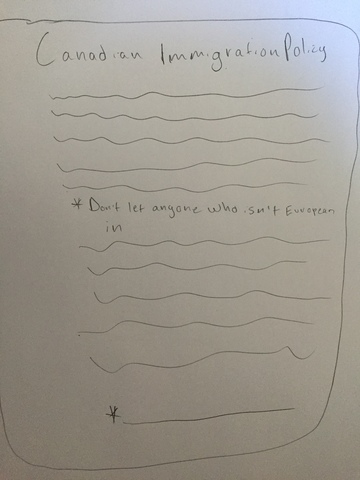 Canadian Immigration Policy
* Don't let anyone who isn't European
in
*